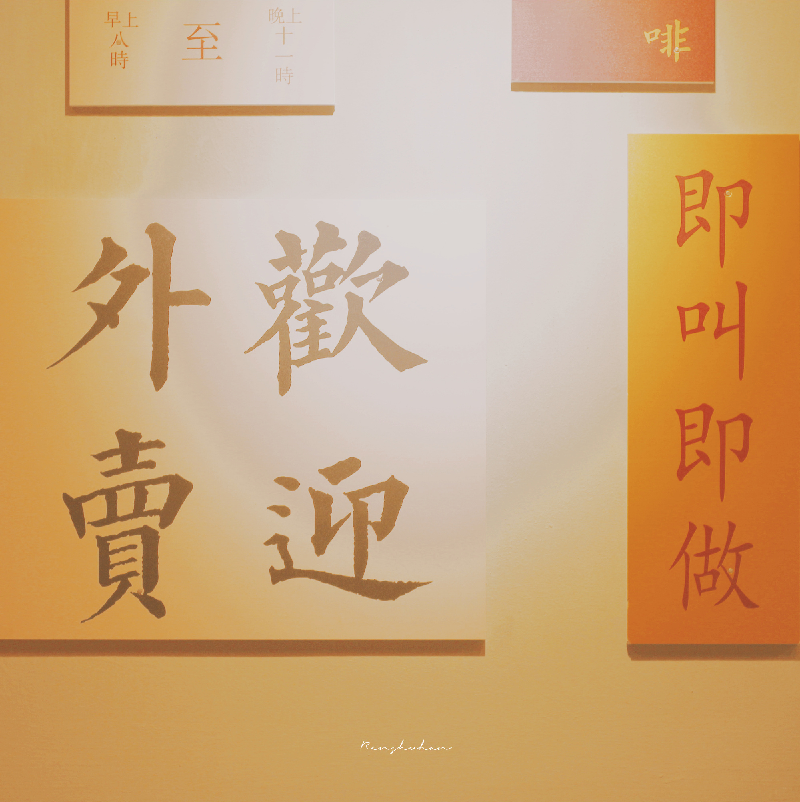 早上
時
至
晚上
十一時
啡
歡迎
外賣
即叫即做